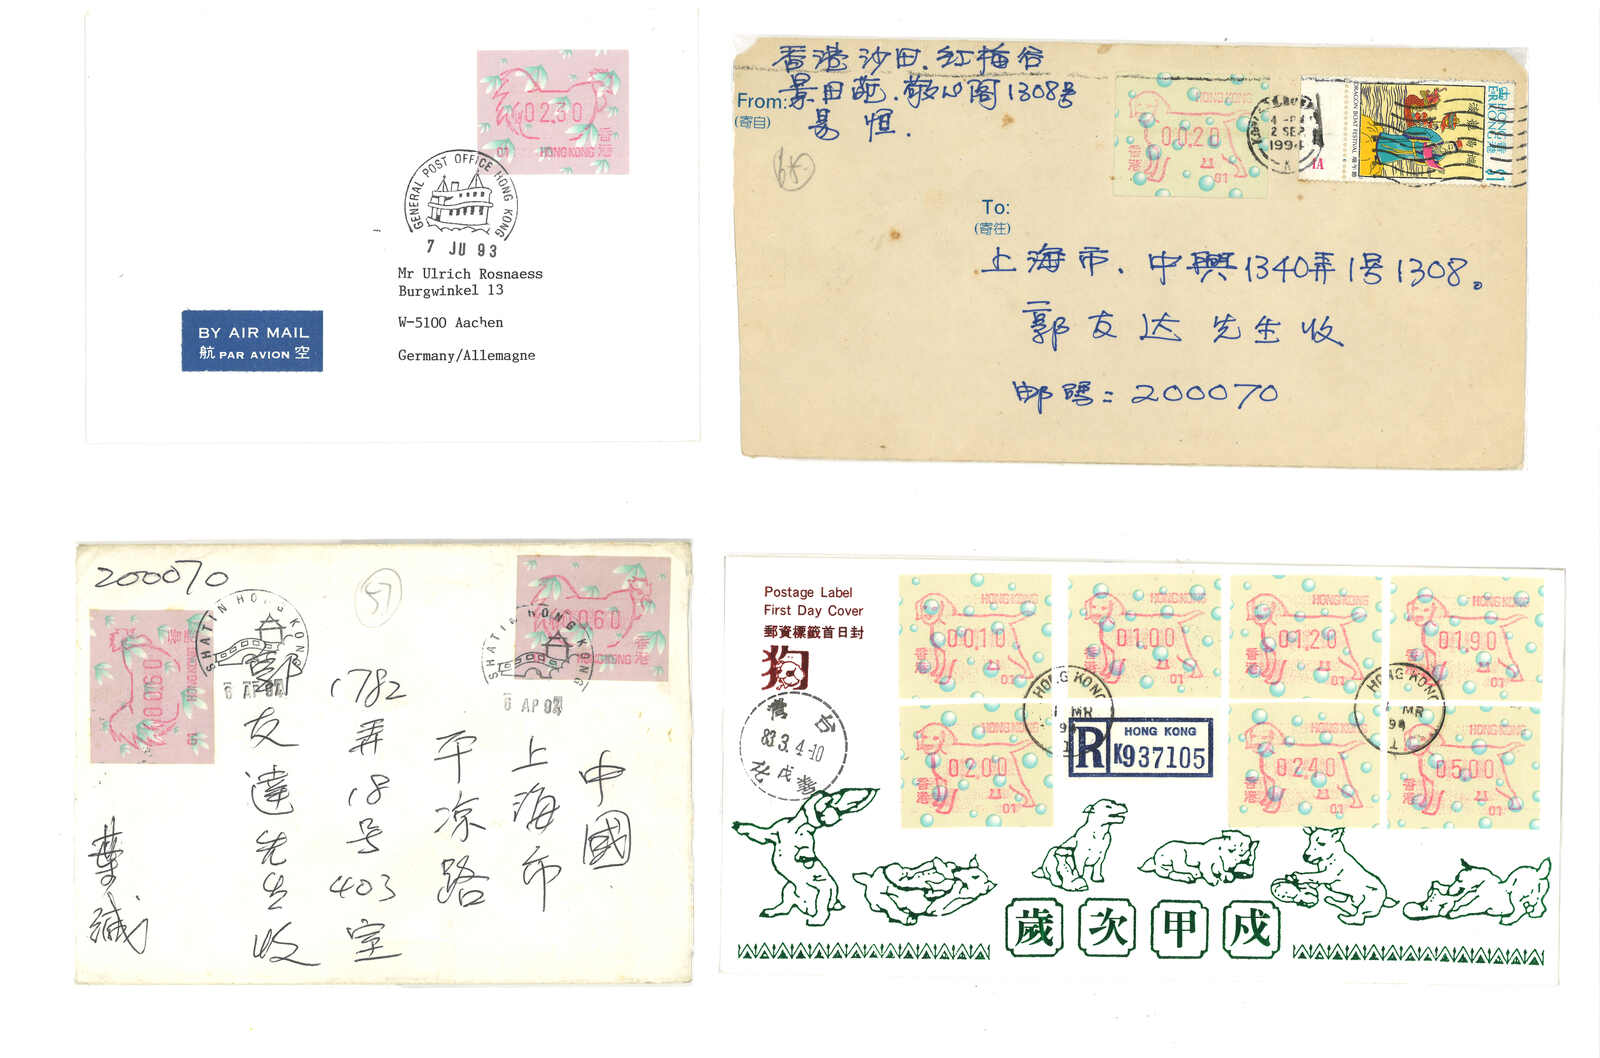 02.30
01 HONG KONG 香港
GENERAL POST OFFICE HONG KONG
7 JU 93
Mr Ulrich Rosnaess
Burgwinkel 13
W-5100 Aachen
Germany/Allemagne
BY AIR MAIL
航 PAR AVION 空
香港沙田.红梅谷
From: 景田苑.敬心阁1308号
(寄自)
易恒.
HONG KONG
00.20
香港
01
2 SEP
1994
DRAGON BOAT FESTIVAL 端午節
HONG KONG
$1
1A
To:
(寄往)
上海市、中興1340弄1号1308。
郭友达先生收
邮码:200070
200070
57
00.60
香港
HONG KONG
01
SHATIN HONG KONG
6 AP 02
00.60
HONG KONG 香港
SHATIN HONG KONG
6 AP 02
中國
上海市
平凉路
1782弄18号403室
郭友達先生收
葉緘
Postage Label
First Day Cover
郵資標籤首日封
狗
台灣
83.3.4-10
花蓮
HONG KONG
00.10
香港
01
HONG KONG
01.00
香港
01
HONG KONG
01.20
香港
01
HONG KONG
01.90
香港
01
HONG KONG
02.00
香港
01
HONG KONG
1 MR
94
R HONG KONG
K937105
HONG KONG
02.40
香港
01
HONG KONG
1 MR
94
HONG KONG
05.00
香港
01
歲次甲戌